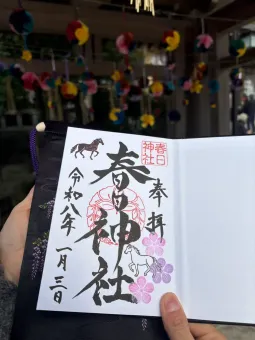 奉拝
春日
神社
春日神社
令和八年
一月三日